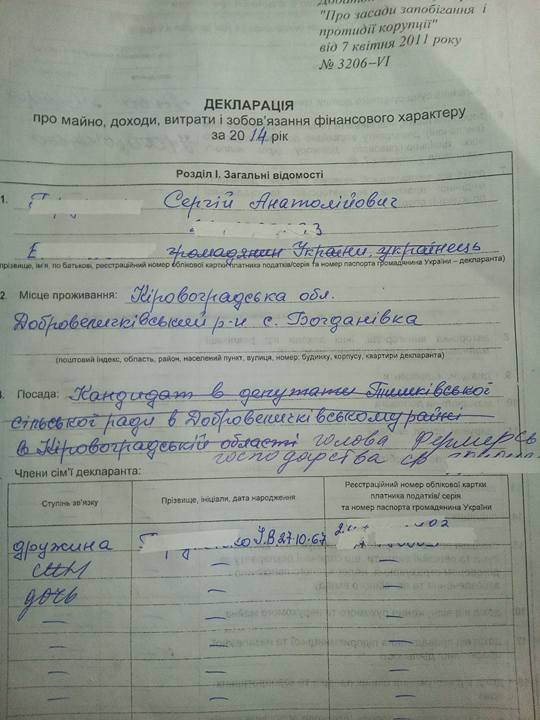 "Про засади запобігання і
протидії корупції"
від 7 квітня 2011 року
№ 3206–VI
ДЕКЛАРАЦІЯ
про майно, доходи, витрати і зобов'язання фінансового характеру
за 2014 рік
Розділ I. Загальні відомості
1. Сергій Анатолійович
3
громадянин України, українець
прізвище, ім'я, по батькові, реєстраційний номер облікової картки платника податків/серія та номер паспорта громадянина України – декларанта)
2. Місце проживання: Кіровоградська обл.
Добровеличківський р-н с. Богданівка
(поштовий індекс, область, район, населений пункт, вулиця, номер: будинку, корпусу, квартири декларанта)
Посада: Кандидат в депутати
сільської ради в Добровеличківському районі
в Кіровоградській області голова Фермерсь
господарства
Члени сім'ї декларанта:
Ступінь зв'язку
Прізвище, ініціали, дата народження
Реєстраційний номер облікової картки
платника податків/ серія
та номер паспорта громадянина України
дружина І.В. 27.10.67
син — —
дочь — —
— — —
— — —
— — —
— — —